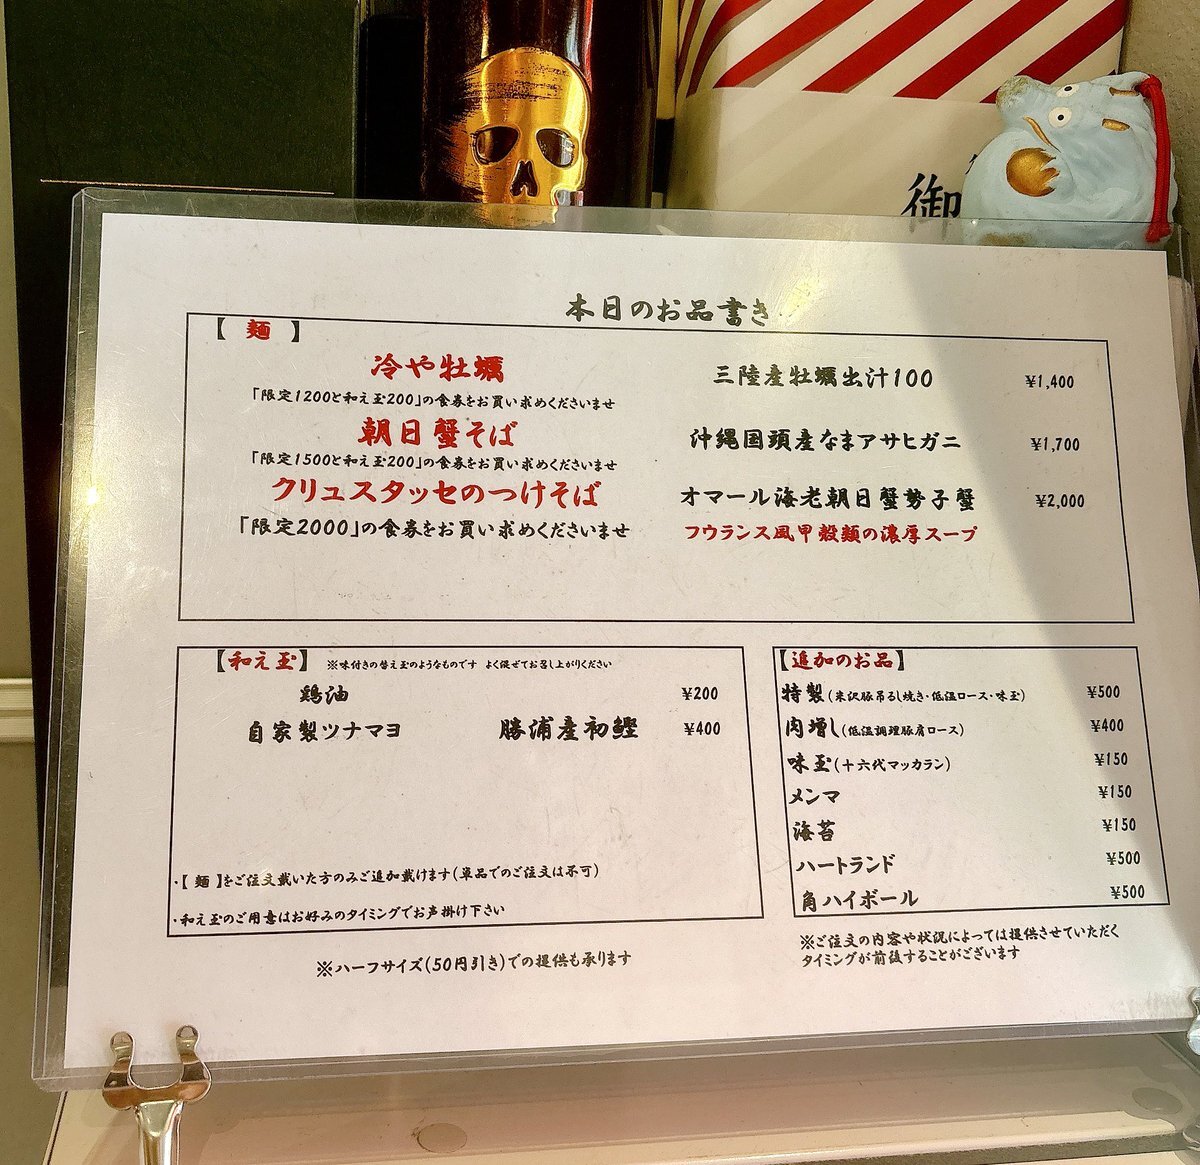 御
本日のお品書き
【 麺 】
冷や牡蠣 三陸産牡蠣出汁100 ¥1,400
「限定1200と和え玉200」の食券をお買い求めくださいませ
朝日蟹そば 沖縄国頭産なまアサヒガニ ¥1,700
「限定1500と和え玉200」の食券をお買い求めくださいませ
クリュスタッセのつけそば オマール海老朝日蟹勢子蟹 ¥2,000
「限定2000」の食券をお買い求めくださいませ フウランス風甲殻類の濃厚スープ
【和え玉】 ※味付きの替え玉のようなものです よく混ぜてお召し上がりください
鶏油 ¥200
自家製ツナマヨ 勝浦産初鰹 ¥400
・【 麺 】をご注文戴いた方のみご追加戴けます(単品でのご注文は不可)
・和え玉のご用意はお好みのタイミングでお声掛け下さい
※ハーフサイズ(50円引き)での提供も承ります
【追加のお品】
特製(米沢豚吊るし焼き・低温ロース・味玉) ¥500
肉増し(低温調理豚肩ロース) ¥400
味玉(十六代マッカラン) ¥150
メンマ ¥150
海苔 ¥150
ハートランド ¥500
角ハイボール ¥500
※ご注文の内容や状況によっては提供させていただく
タイミングが前後することがございます